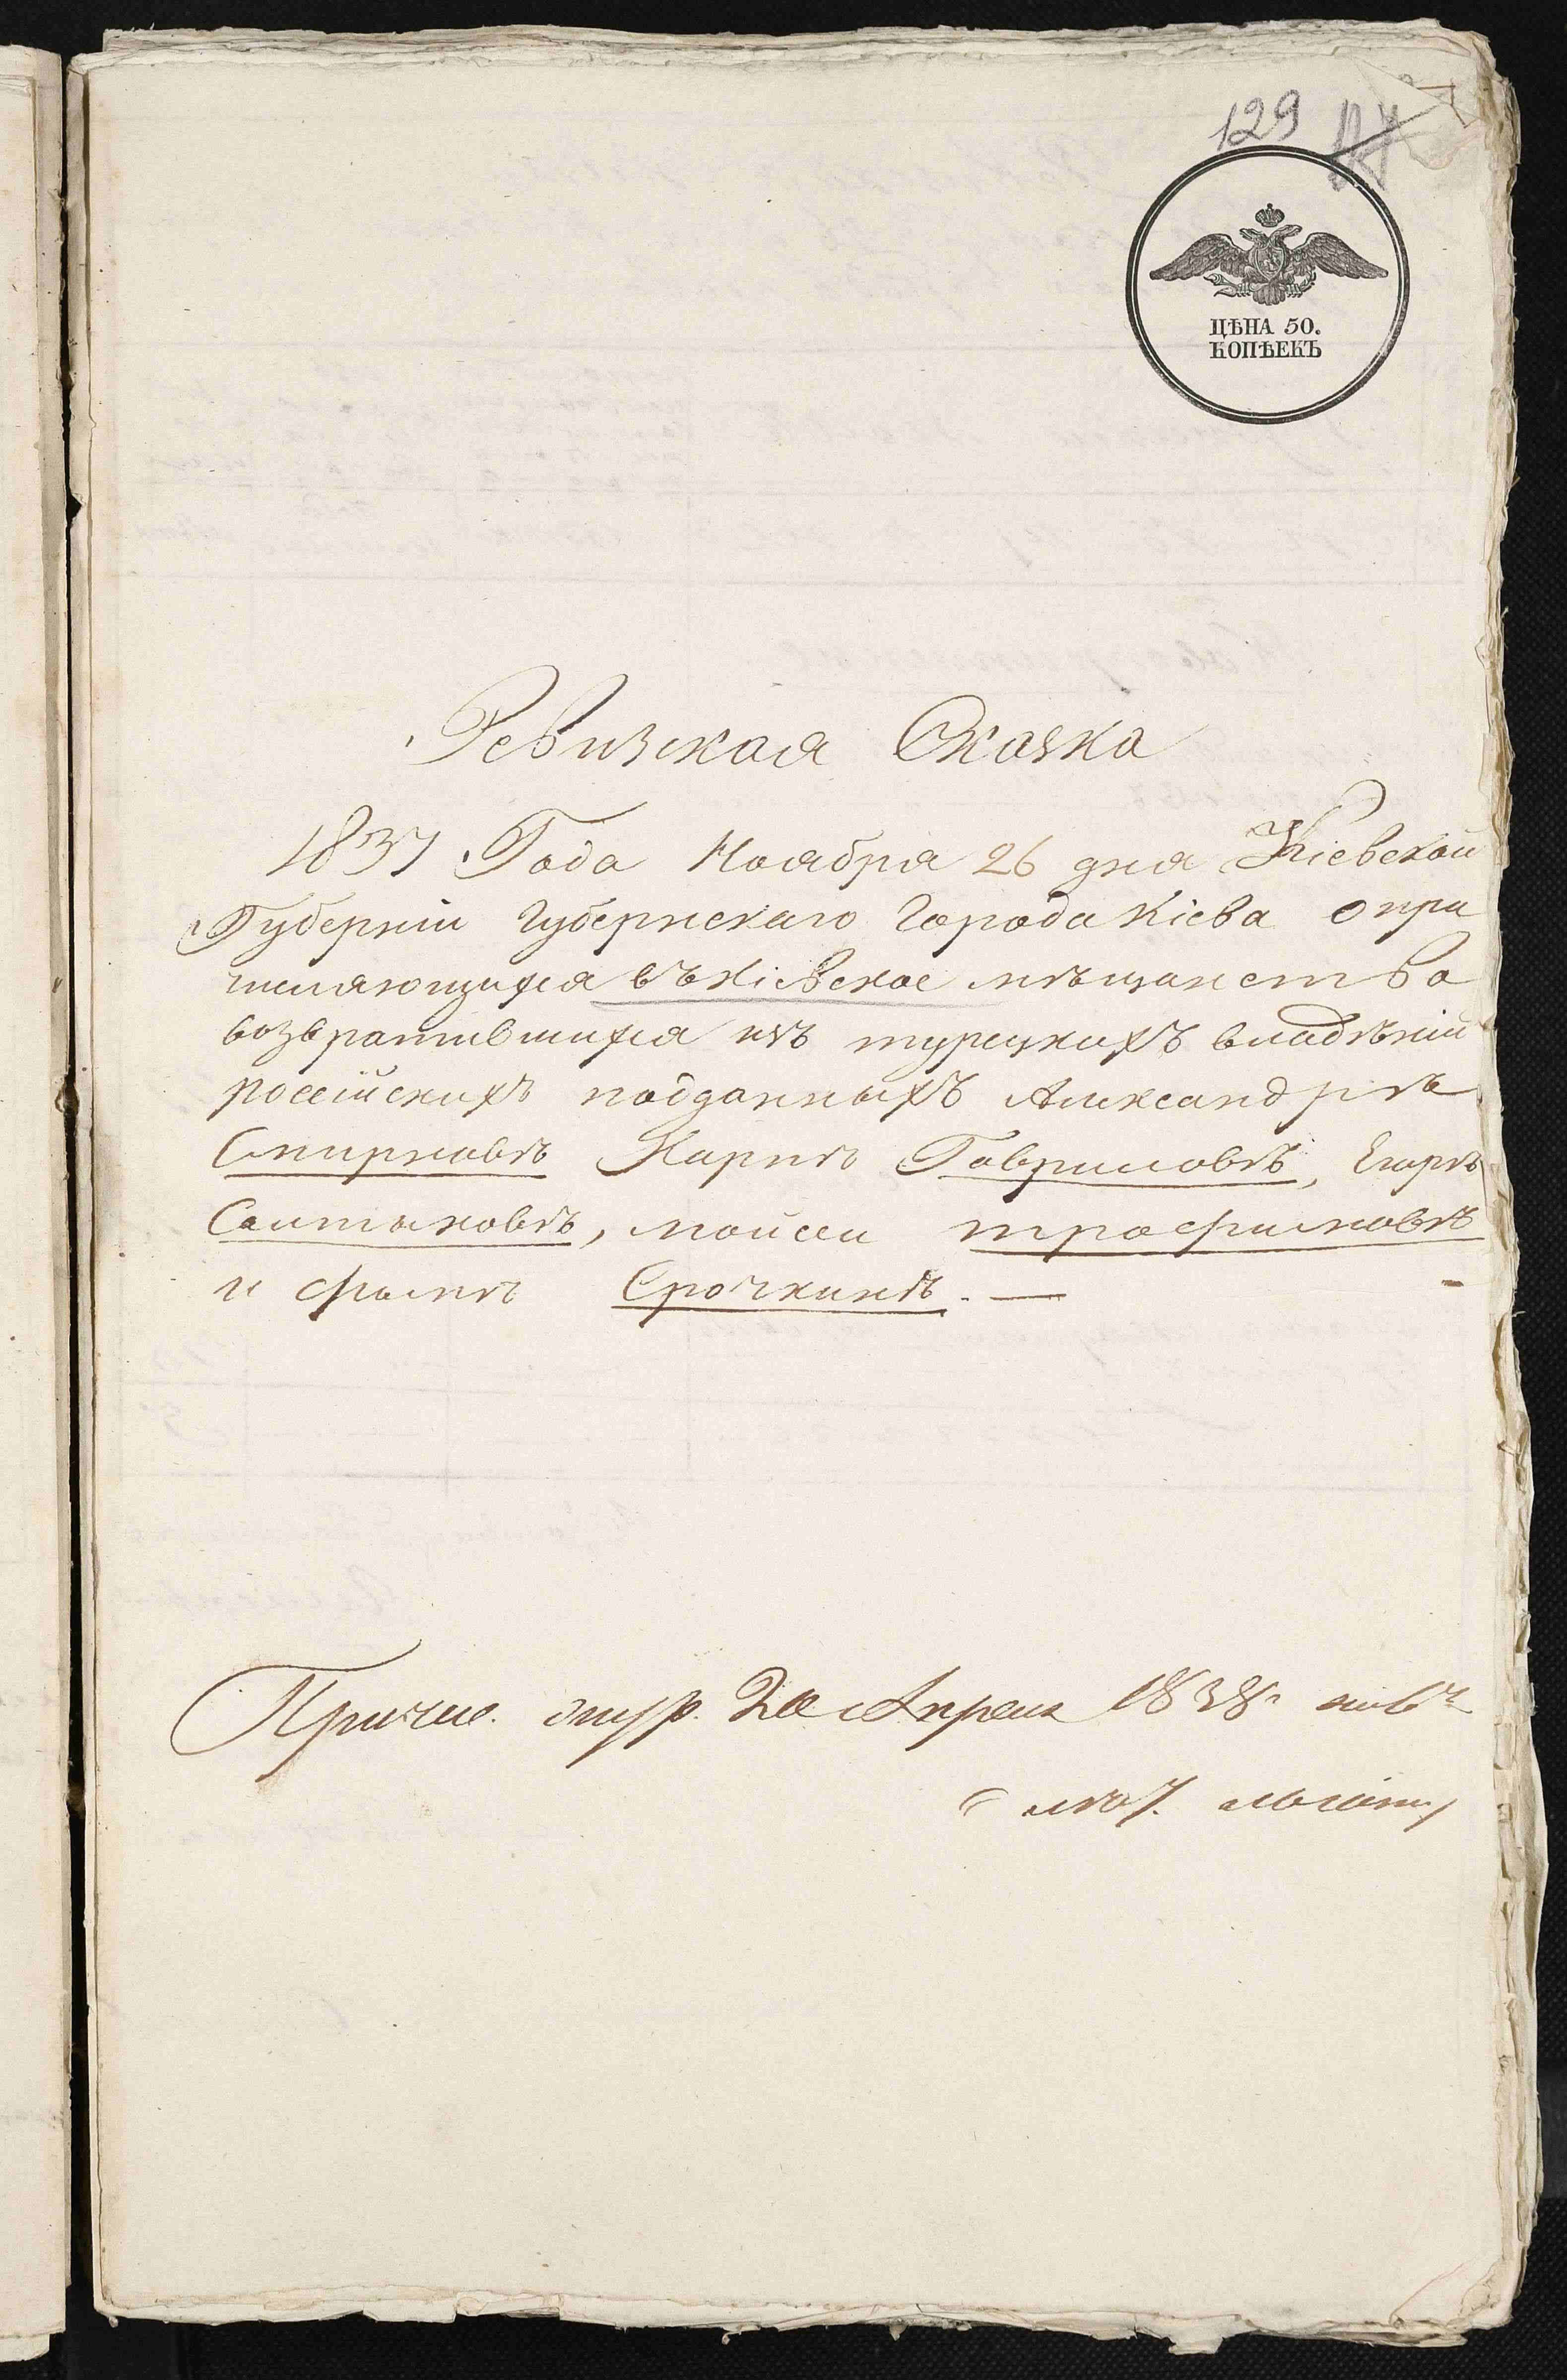 129
ЦѢНА 50.
КОПѢЕКЪ
Ревизская Сказка
1837 Года Ноября 26 дня Кіевской
Губерніи Губернскаго Города Кіева о при
числяющихся въ Кіевское мѣщанство
возвратившихся изъ турецкихъ владѣній
россійскихъ подданныхъ Александръ
Смирновъ Карпъ Гавриловъ, Егоръ
Салтыковъ, мойсеи трофимовъ
и Срочкинъ. —
Причис. Апреля 1838